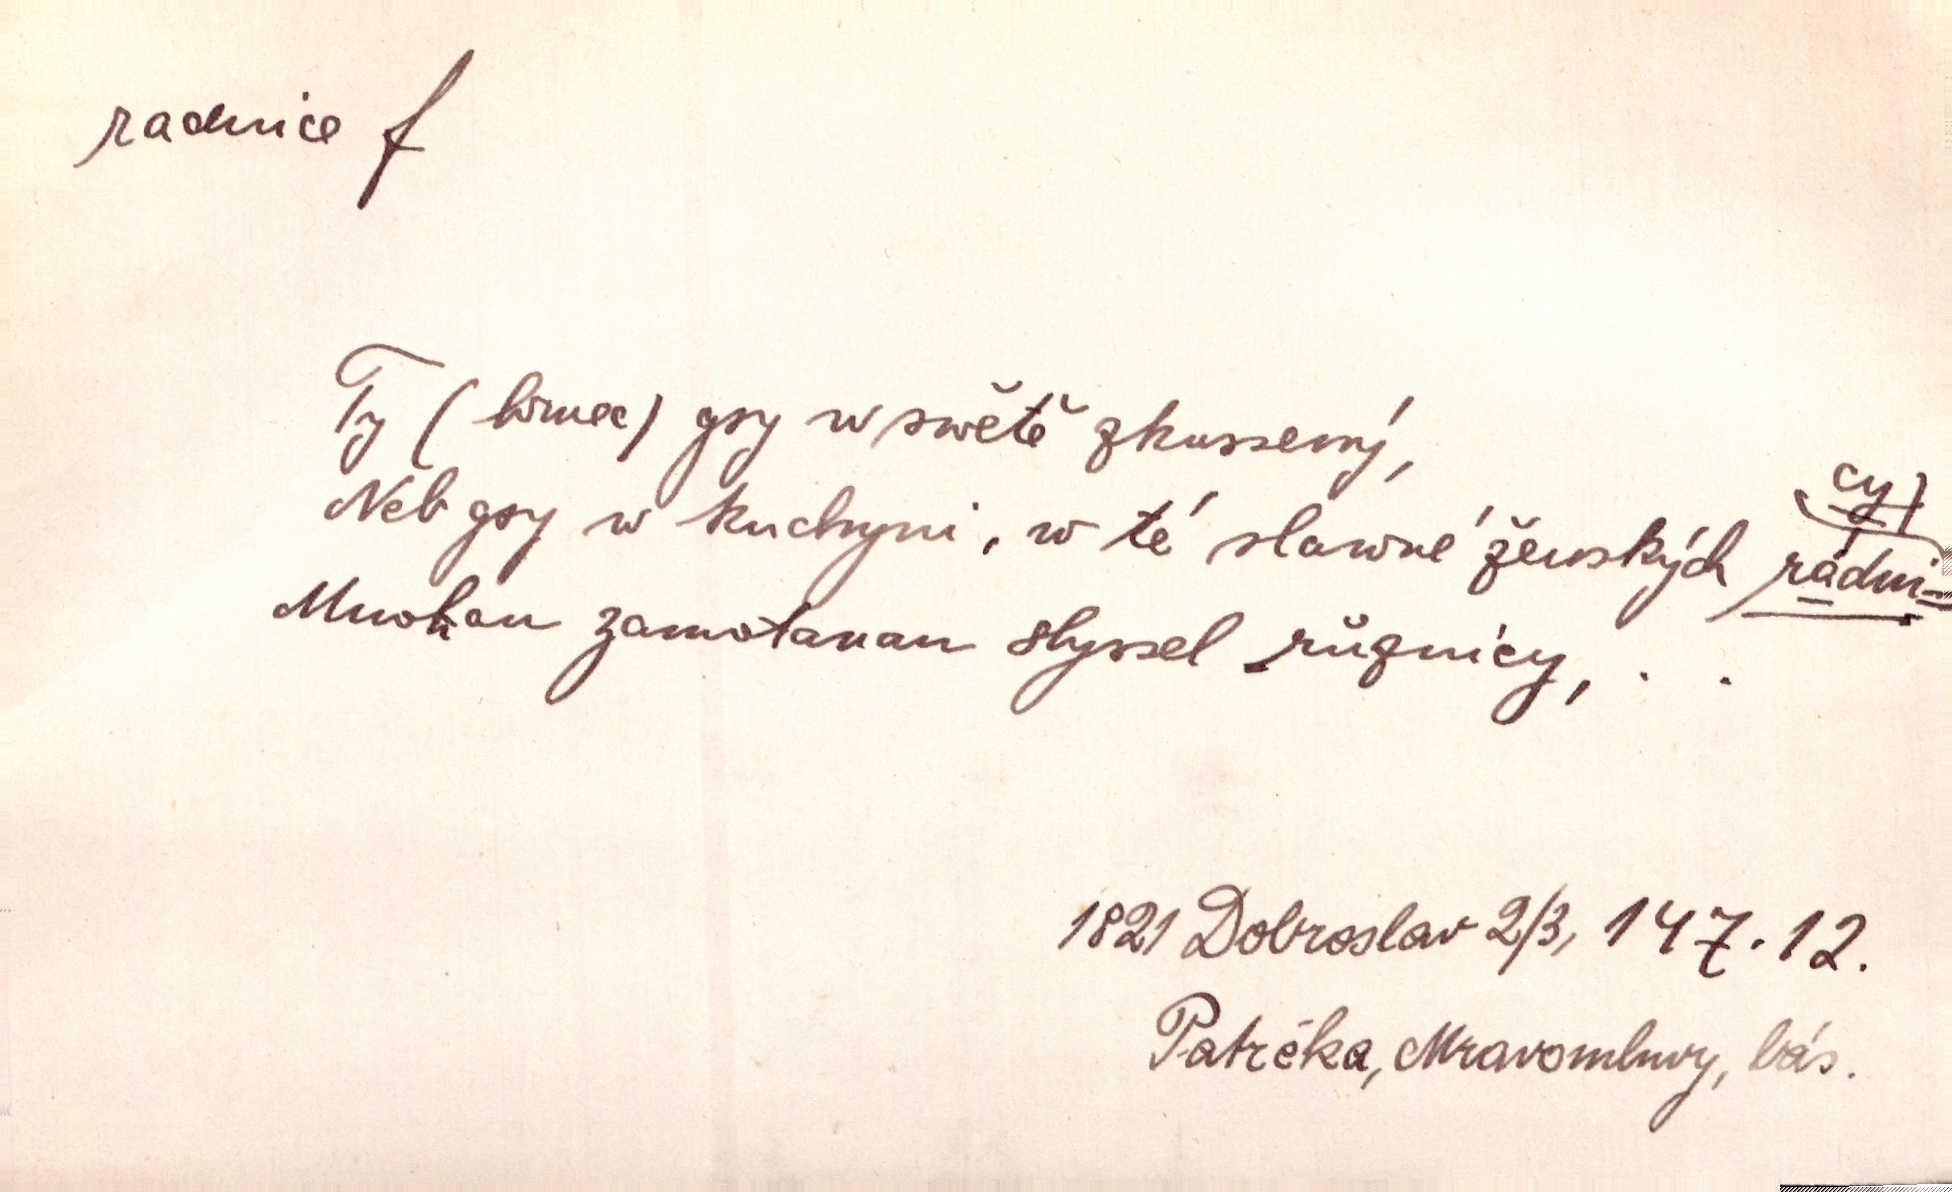 radnice f
Ty (hrnec) gsy w swětě zkussený,
Neb gsy w kuchyni, w té slawné ženských rádni-
cy)
Mnohau zamotanau slyssel různicy, . .
1821 Dobroslav 2/3, 147. 12.
Patrčka, Mravomluvy, bás.